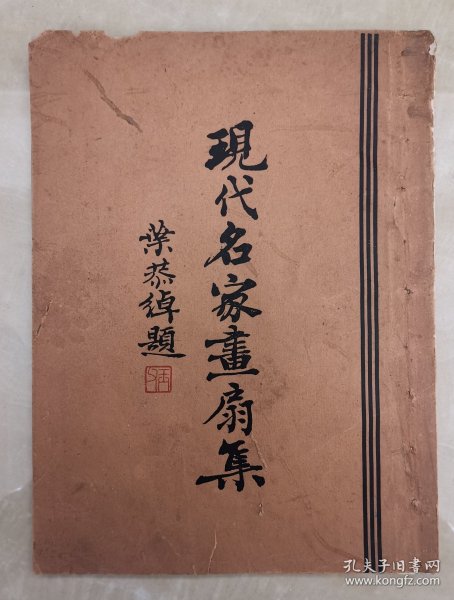 現代名家畫扇集
葉恭綽題
孔夫子旧書网
www.kongfz.com